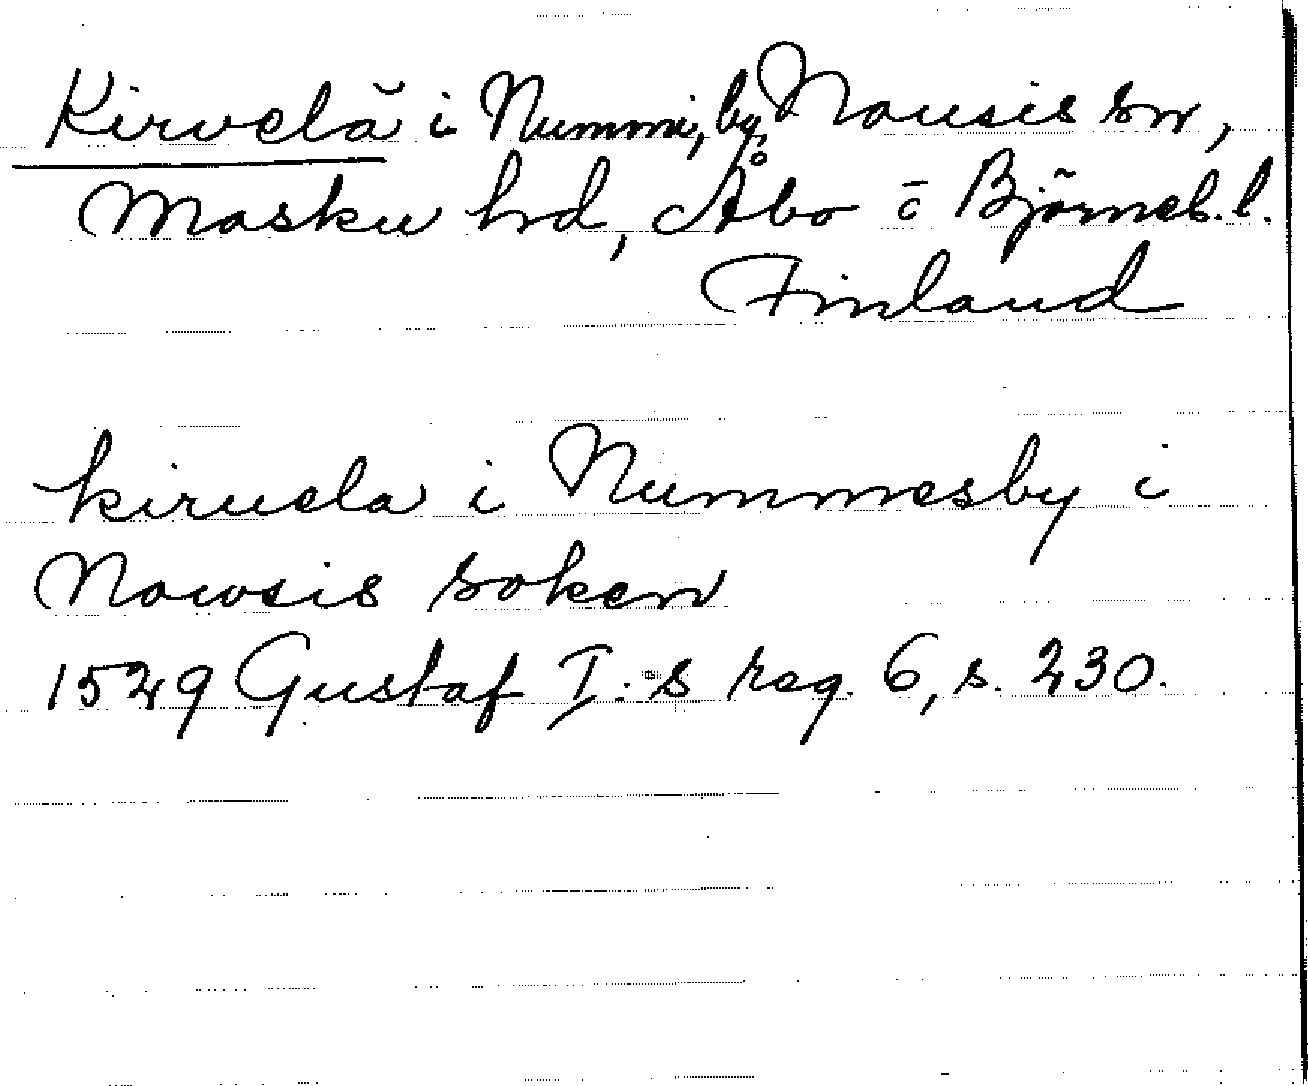 Kirvelä i Nummi, by, Nousis sn,
Masku hd, Åbo o Björneb. l.
Finland
kiruela i Nummesby i
Nowsis soken
1529 Gustaf I:s reg. 6, s. 230.